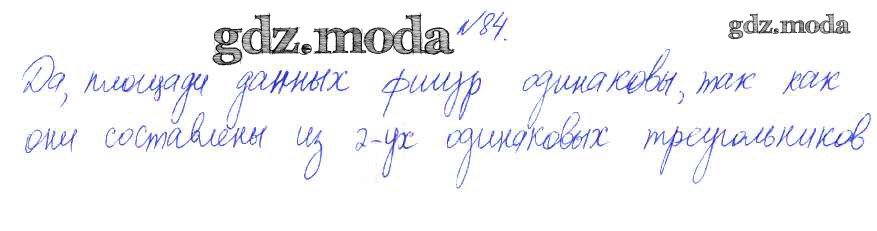 gdz.moda №84. gdz.moda
Да, площади данных фигур одинаковы, так как
они составлены из 2-ух одинаковых треугольников